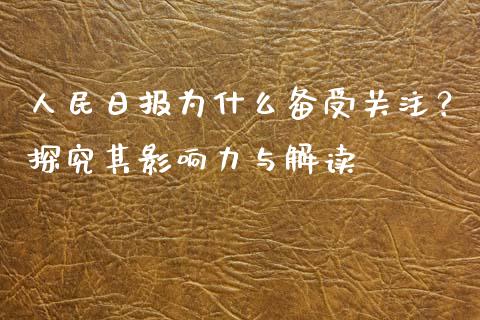 人民日报为什么备受关注？
探究其影响力与解读